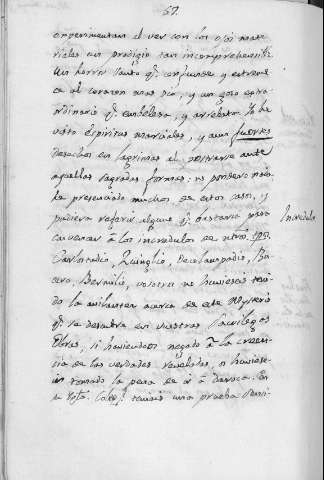 57.
experimentan al ver con los ojos mate-
riales un prodigio tan incomprehensible
Un horror santo q.e confunde y estreme-
ce al corazon mas pio, y un gozo extra-
ordinario q.e embelesa, y arrebata. Yo he
visto Espiritus marciales, y aun fuertes
desechos en lagrimas al postrarse ante
aquellas sagradas formas: no pondero nada
he presenciado muchos de estos casos, y
pudiera referir alguno q.e bastaria para
convencer à los incredulos de ntros. dias.
Carlostadio, Zuinglio, Oecolampadio, Bu-
cero, vosotros no huvieseis teni-
do la avilantez acerca de este Mysterio
q.e se descubre en vuestras sacrilegas
Obras, si haviendoos negado à la creen-
cia de las verdades reveladas, os huviese-
is tomado la pena de ir à Daroca. En
su Ygta. Coleg.l teneis una prueba
Incredulos